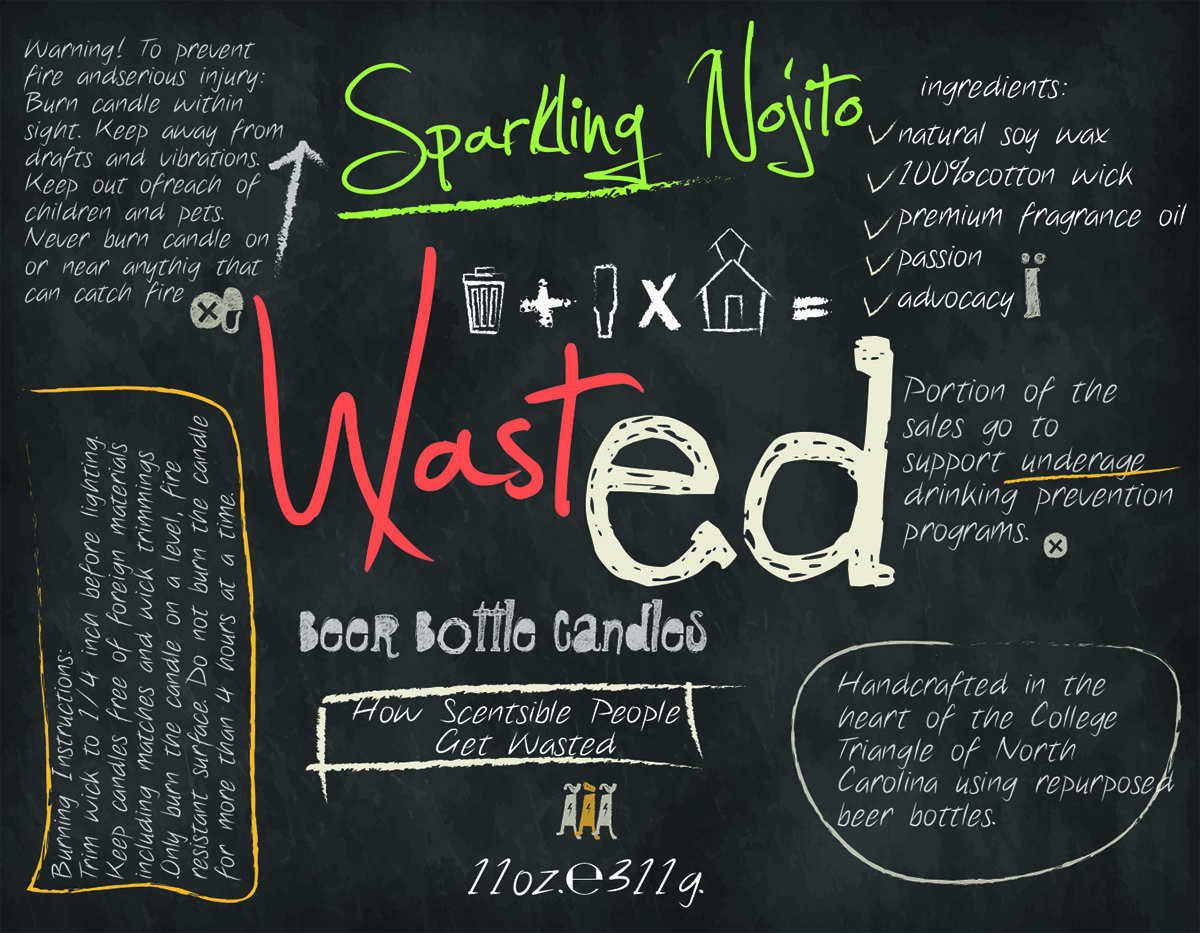 Warning! To prevent
fire andserious injury:
Burn candle within
sight. Keep away from
drafts and vibrations.
Keep out ofreach of
children and pets.
Never burn candle on
or near anythig that
can catch fire
Sparkling Nojito
ingredients:
natural soy wax
100%cotton wick
premium fragrance oil
passion
advocacy
+ x =
Wasted
Portion of the
sales go to
support underage
drinking prevention
programs.
Burning Instructions:
Trim wick to 1/4 inch before lighting.
Keep candles free of foreign materials
including matches and wick trimmings
Only burn the candle on a level, fire
resistant surface. Do not burn the candle
for more than 4 hours at a time.
Beer Bottle Candles
How Scentsible People
Get Wasted
11oz.℮311g.
Handcrafted in the
heart of the College
Triangle of North
Carolina using repurposed
beer bottles.